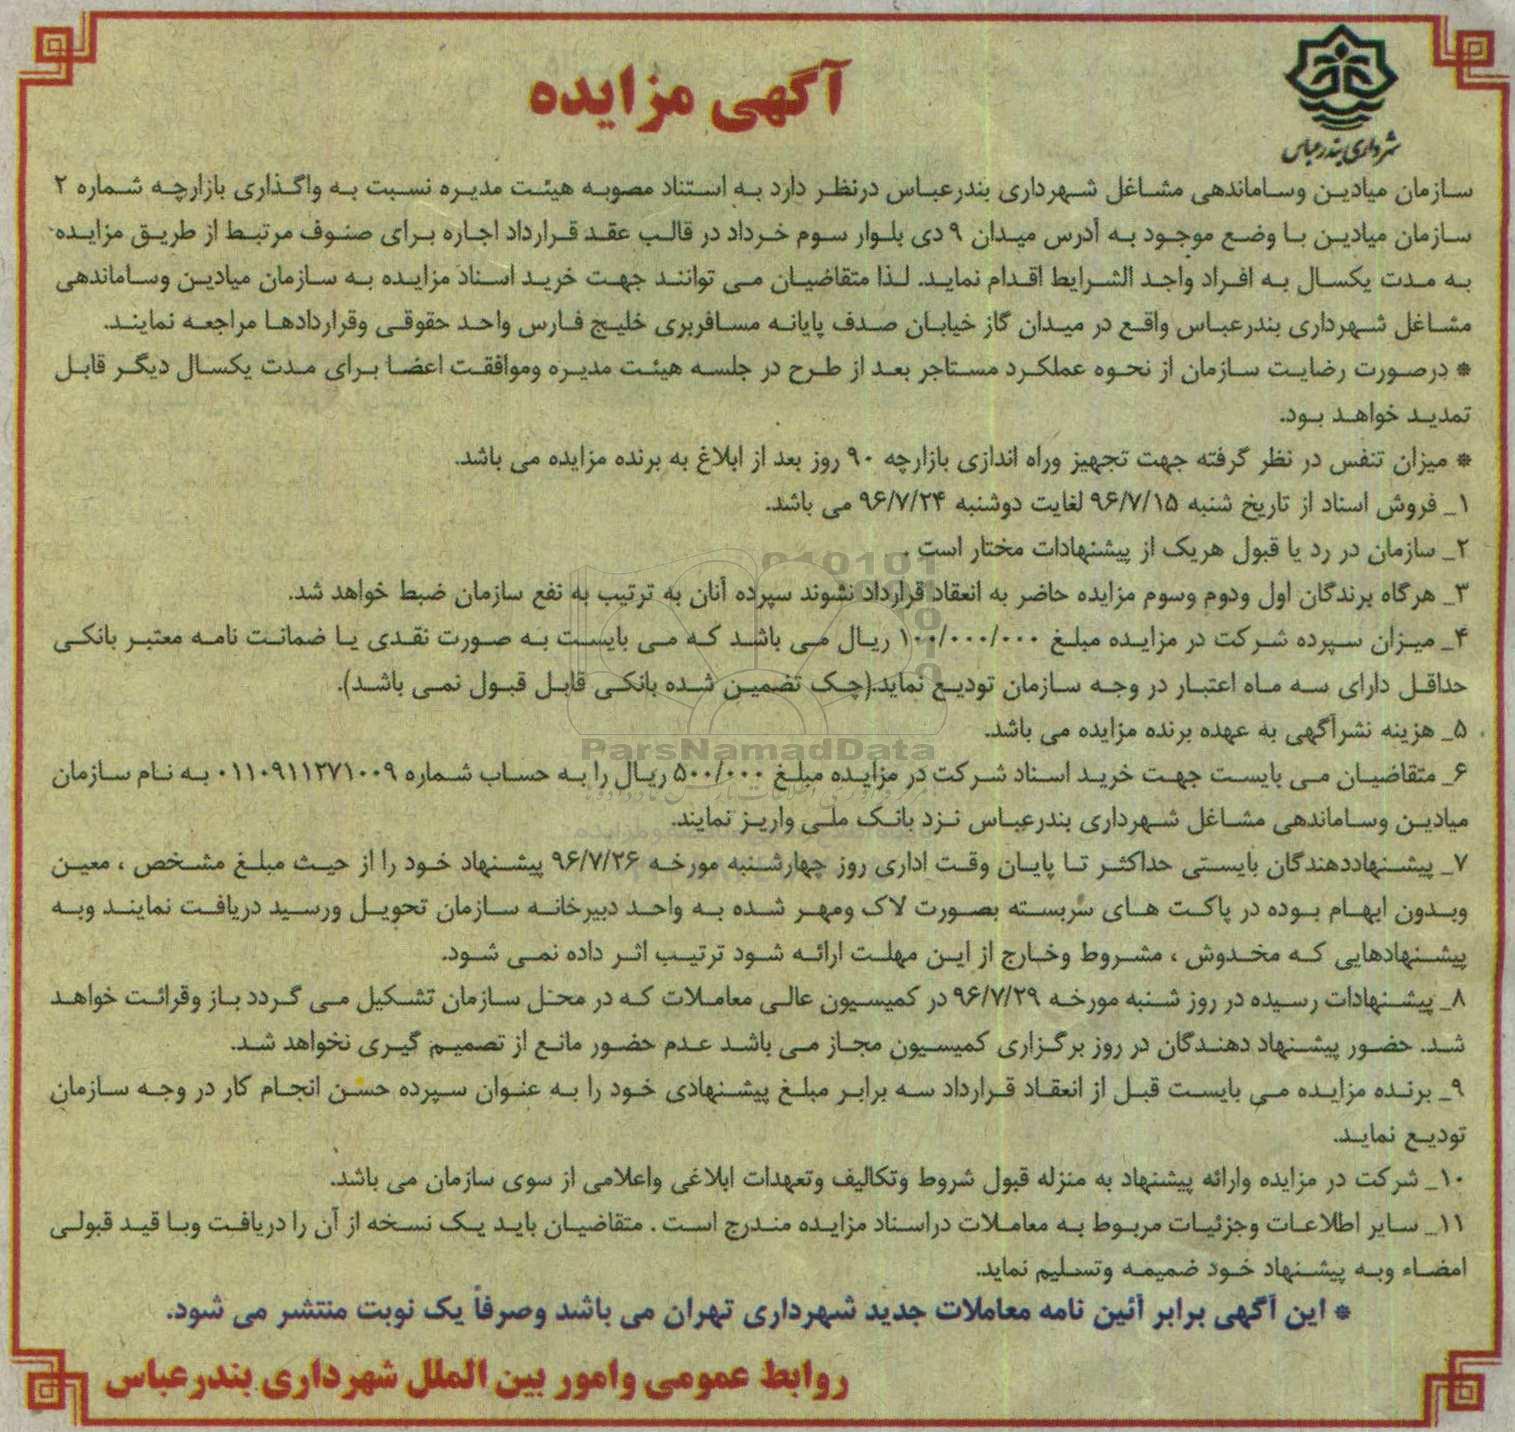 شهرداری بندرعباس
آگهی مزایده
سازمان میادین وساماندهی مشاغل شهرداری بندرعباس درنظر دارد به استناد مصوبه هیئت مدیره نسبت به واگذاری بازارچه شماره ۲
سازمان میادین با وضع موجود به آدرس میدان ۹ دی بلوار سوم خرداد در قالب عقد قرارداد اجاره برای صنوف مرتبط از طریق مزایده
به مدت یکسال به افراد واجد الشرایط اقدام نماید. لذا متقاضیان می توانند جهت خرید اسناد مزایده به سازمان میادین وساماندهی
مشاغل شهرداری بندرعباس واقع در میدان گاز خیابان صدف پایانه مسافربری خلیج فارس واحد حقوقی وقراردادها مراجعه نمایند.
* درصورت رضایت سازمان از نحوه عملکرد مستاجر بعد از طرح در جلسه هیئت مدیره وموافقت اعضا برای مدت یکسال دیگر قابل
تمدید خواهد بود.
* میزان تنفس در نظر گرفته جهت تجهیز وراه اندازی بازارچه ۹۰ روز بعد از ابلاغ به برنده مزایده می باشد.
۱_ فروش اسناد از تاریخ شنبه ۹۶/۷/۱۵ لغایت دوشنبه ۹۶/۷/۲۴ می باشد.
۲_ سازمان در رد یا قبول هریک از پیشنهادات مختار است .
۳_ هرگاه برندگان اول ودوم وسوم مزایده حاضر به انعقاد قرارداد نشوند سپرده آنان به ترتیب به نفع سازمان ضبط خواهد شد.
۴_ میزان سپرده شرکت در مزایده مبلغ ۱۰۰/۰۰۰/۰۰۰ ریال می باشد که می بایست به صورت نقدی یا ضمانت نامه معتبر بانکی
حداقل دارای سه ماه اعتبار در وجه سازمان تودیع نماید.(چک تضمین شده بانکی قابل قبول نمی باشد).
۵_ هزینه نشرآگهی به عهده برنده مزایده می باشد.
ParsNamadData
۶_ متقاضیان می بایست جهت خرید اسناد شرکت در مزایده مبلغ ۵۰۰/۰۰۰ ریال را به حساب شماره ۰۱۱۰۹۱۱۲۷۱۰۰۹ به نام سازمان
میادین وساماندهی مشاغل شهرداری بندرعباس نزد بانک ملی واریز نمایند.
۷_ پیشنهاددهندگان بایستی حداکثر تا پایان وقت اداری روز چهارشنبه مورخه ۹۶/۷/۲۶ پیشنهاد خود را از حیث مبلغ مشخص ، معین
وبدون ابهام بوده در پاکت های سربسته بصورت لاک ومهر شده به واحد دبیرخانه سازمان تحویل ورسید دریافت نمایند وبه
پیشنهادهایی که مخدوش ، مشروط وخارج از این مهلت ارائه شود ترتیب اثر داده نمی شود.
۸_ پیشنهادات رسیده در روز شنبه مورخه ۹۶/۷/۲۹ در کمیسیون عالی معاملات که در محل سازمان تشکیل می گردد باز وقرائت خواهد
شد. حضور پیشنهاد دهندگان در روز برگزاری کمیسیون مجاز می باشد عدم حضور مانع از تصمیم گیری نخواهد شد.
۹_ برنده مزایده می بایست قبل از انعقاد قرارداد سه برابر مبلغ پیشنهادی خود را به عنوان سپرده حسن انجام کار در وجه سازمان
تودیع نماید.
۱۰_ شرکت در مزایده وارائه پیشنهاد به منزله قبول شروط وتکالیف وتعهدات ابلاغی واعلامی از سوی سازمان می باشد.
۱۱_ سایر اطلاعات وجزئیات مربوط به معاملات دراسناد مزایده مندرج است . متقاضیان باید یک نسخه از آن را دریافت وبا قید قبولی
امضاء وبه پیشنهاد خود ضمیمه وتسلیم نماید.
* این آگهی برابر آئین نامه معاملات جدید شهرداری تهران می باشد وصرفاً یک نوبت منتشر می شود.
روابط عمومی وامور بین الملل شهرداری بندرعباس